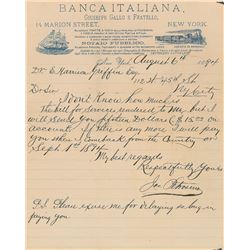 BANCA ITALIANA,
GIUSEPPE GALLO E FRATELLO,
14 MARION STREET, NEW YORK.
NOTAIO PUBBLICO.
New York August 6th 1894
Dr E Harrison Griffin Esq
112 W 45th St
N.Y. City
Dr Sir
I Don't Know how much is
the bill for services rendered to Me, but I
will Send you fifteen Dollars ($15.00 on
account. If there is any more I will pay
you when I come back from the Country on
Sept 1st 1894
My best regards
Respectfully Yours
P.S. Please excuse me for delaying so long in
paying you.